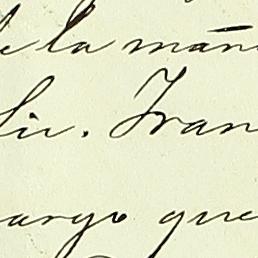 de la man
Lic. Fran
argo que